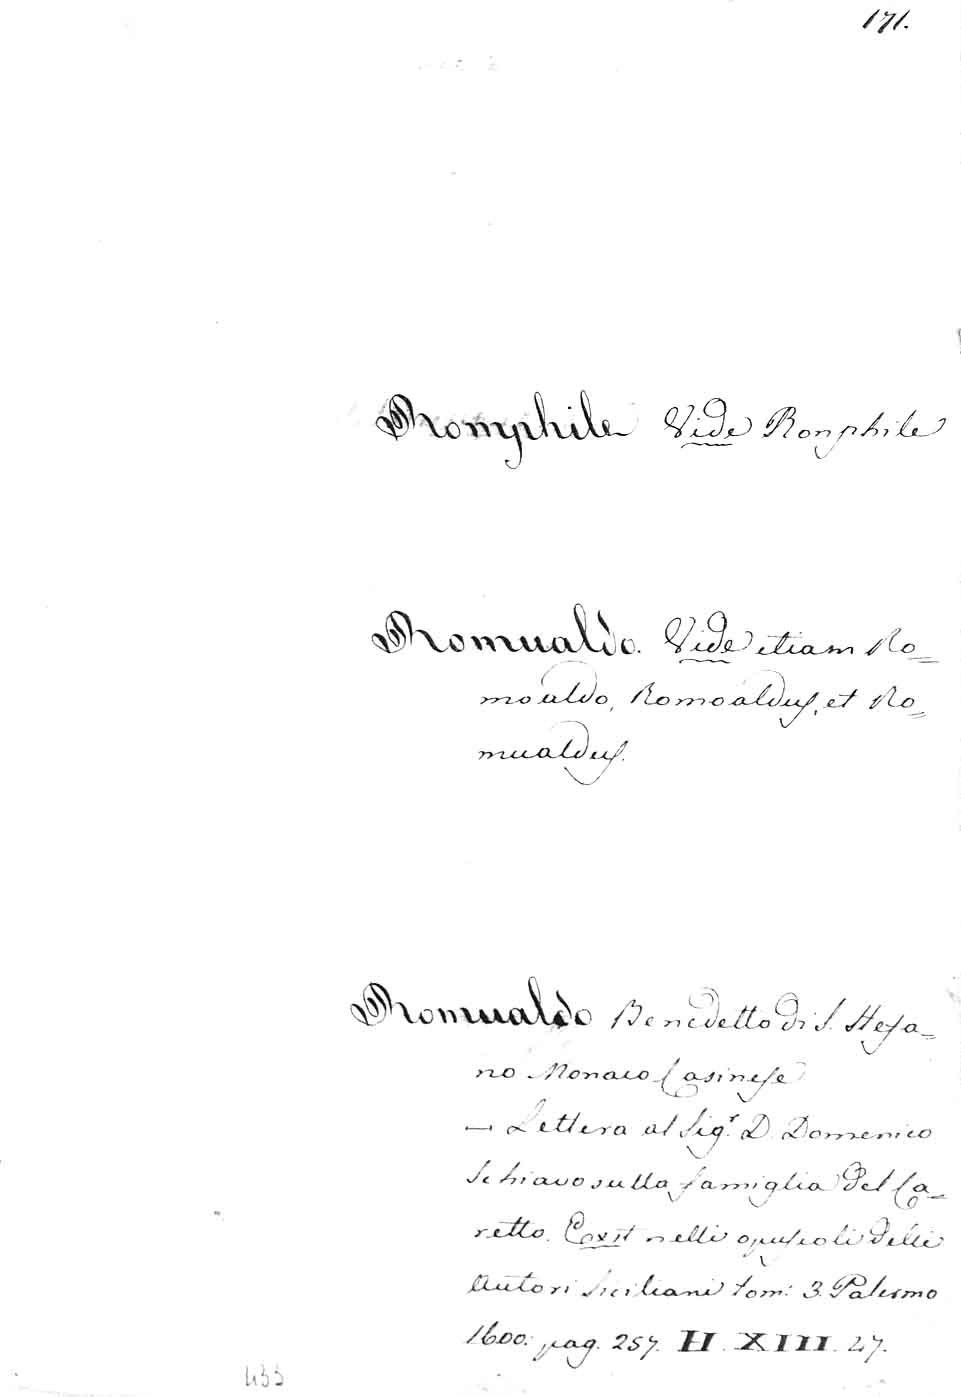 171.
Romphile Vide Ronphile
Romualdo. Vide etiam Ro=
moaldo, Romoaldus, et Ro=
mualdus.
Romualdo Benedetto di S. Stefa=
no Monaco Casinese
— Lettera al Sig.r D. Domenico
Schiavo sulla famiglia del Ca=
retto. Exit nelli opuscoli delli
Autori Siciliani tom: 3. Palermo
1600: pag. 257. H. XIII. 27.
433